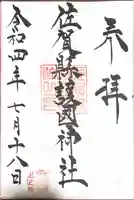 奉拝
佐賀縣護國神社
令和四年七月十八日